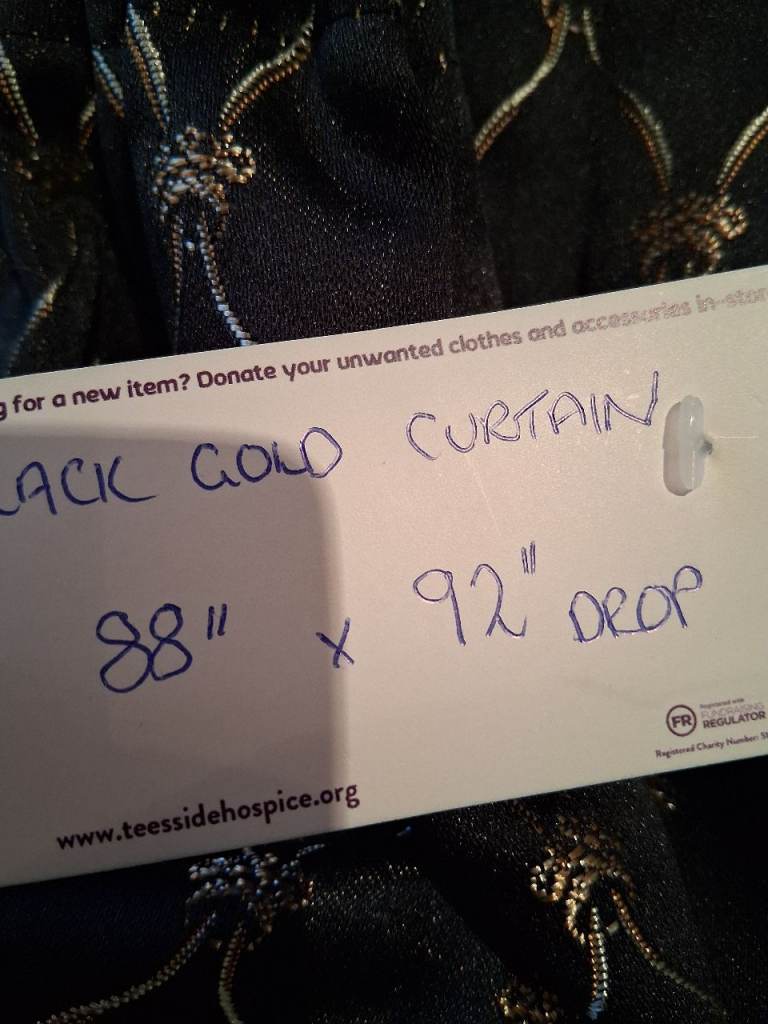 g for a new item? Donate your unwanted clothes and accessories in-stor
LACK GOLD CURTAIN
88" x 92" DROP
FR
Registered with
FUNDRAISING
REGULATOR
Registered Charity Number: 
www.teessidehospice.org